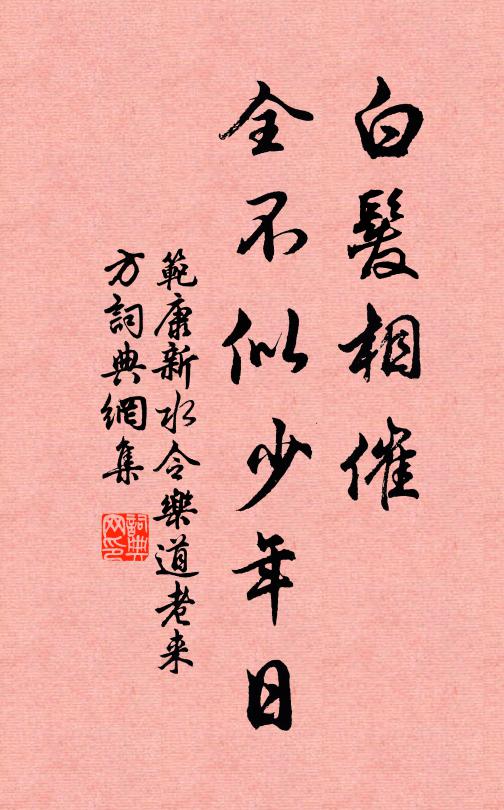 白髮相催
全不似少年日
範康新水令樂道老来
方詞典網集
詞典
网印